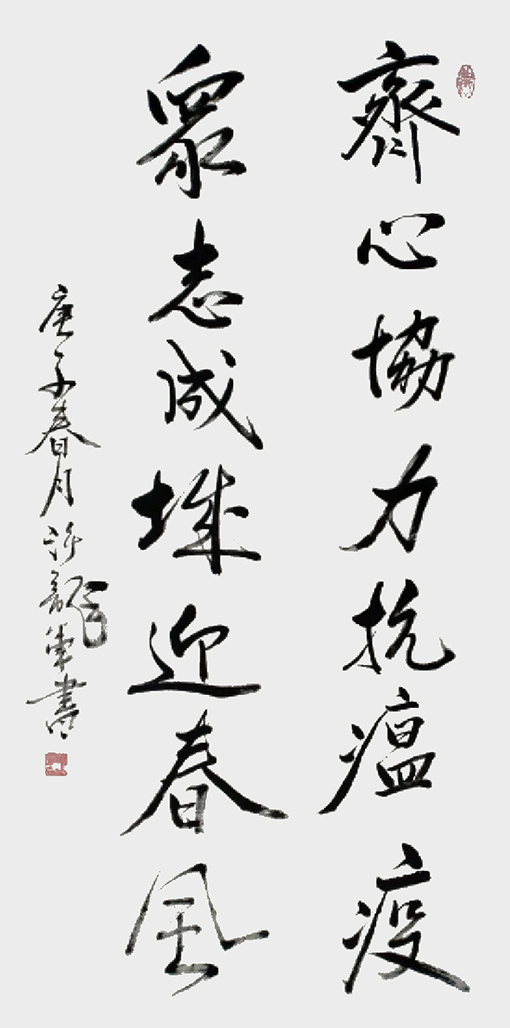 齊心協力抗瘟疫
眾志成城迎春風
庚子春月許龍軍書